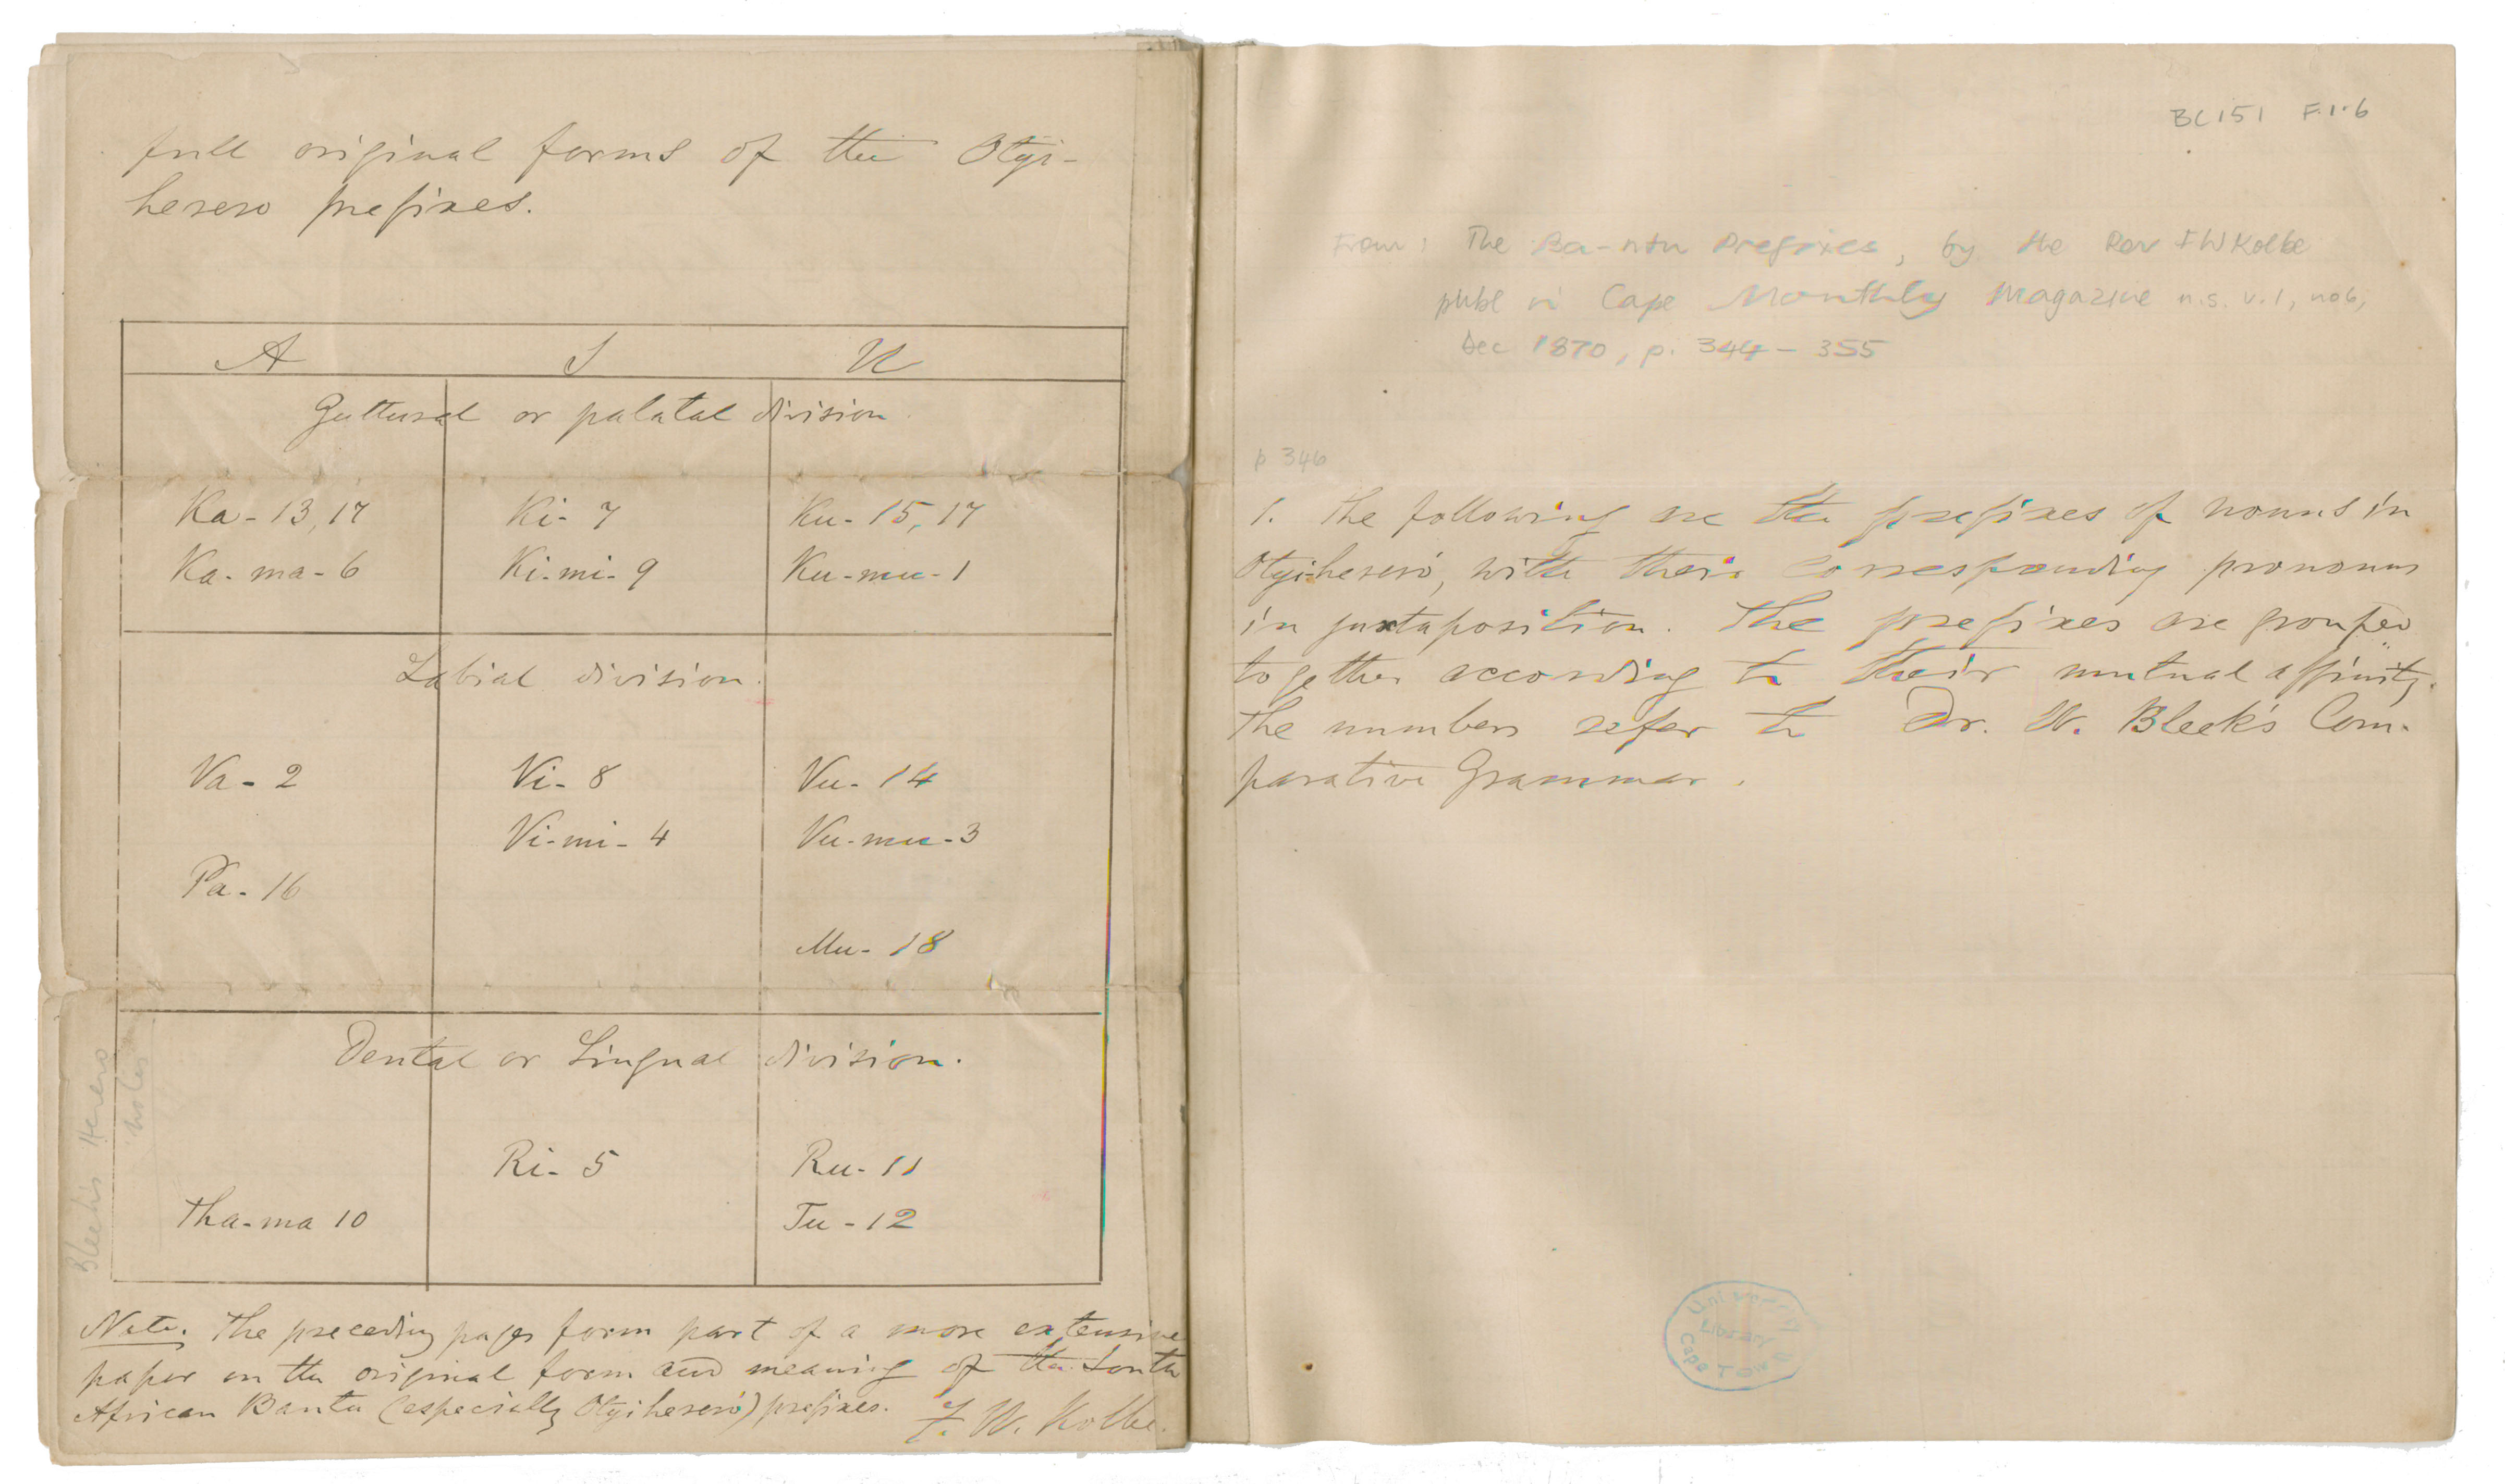 full original forms of the Otyi-
herero prefixes.
A I U
Guttural or palatal division.
Ka- 13, 17 Ki- 7 Ku- 15, 17
Ka-ma- 6 Ki-mi- 9 Ku-mu- 1
Labial division.
Va- 2 Vi- 8 Vu- 14
Vi-mi- 4 Vu-mu- 3
Pa- 16
Mu- 18
Dental or Lingual division.
Ri- 5 Ru- 11
Tha-ma 10 Tu- 12
Note. The preceding pages form part of a more extensive
paper on the original form and meaning of the South
African Bantu (especially Otyihereró) prefixes. F. W. Kolbe.
Bleek's Herero
notes
BC151 F.1.6
From: The Ba-ntu Prefixes, by the Rev F W Kolbe
publ in Cape Monthly Magazine n.s. v.1, no6,
Dec 1870, p. 344-355
p 346
1. The following are the prefixes of nouns in
Otyi-hereró, with their corresponding pronouns
in juxtaposition. The prefixes are grouped
together according to their mutual affinity.
The numbers refer to Dr. W. Bleek's Com-
parative Grammar.
University
Library
Cape Town